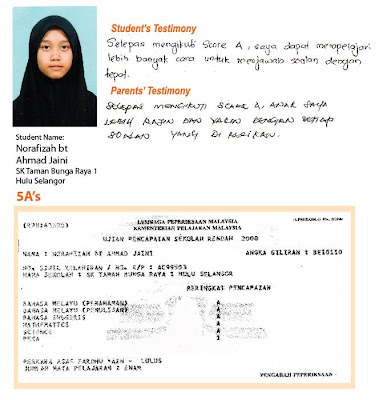 Student's Testimony
Selepas mengikuti Score A, saya dapat mempelajari
lebih banyak cara untuk menjawab soalan dengan
tepat.
Parents' Testimony
SELEPAS MENGIKUTI SCORE A, ANAK SAYA
LEBIH RAJIN DAN YAKIN DENGAN SETIAP
SOALAN YANG DIBERIKAN.
Student Name:
Norafizah bt
Ahmad Jaini
SK Taman Bunga Raya 1
Hulu Selangor
5A's
LEMBAGA PEPERIKSAAN MALAYSIA
KEMENTERIAN PELAJARAN MALAYSIA
UJIAN PENCAPAIAN SEKOLAH RENDAH 2008
NAMA : NORAFIZAH BT AHMAD JAINI ANGKA GILIRAN :
NAMA SEKOLAH : SK TAMAN BUNGA RAYA 1 HULU SELANGOR
PERINGKAT PENCAPAIAN
BAHASA MELAYU (PEMAHAMAN) A
BAHASA MELAYU (PENULISAN) A
BAHASA INGGERIS A
MATHEMATICS A
SCIENCE A
PERKARA ASAS FARDHU 'AIN - LULUS
JUMLAH MATA PELAJARAN : ENAM
PENGARAH PEPERIKSAAN